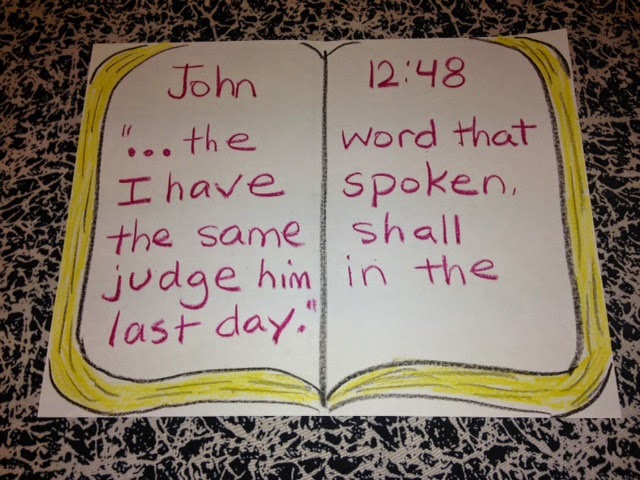 John 12:48
"... the word that
I have spoken,
the same shall
judge him in the
last day."